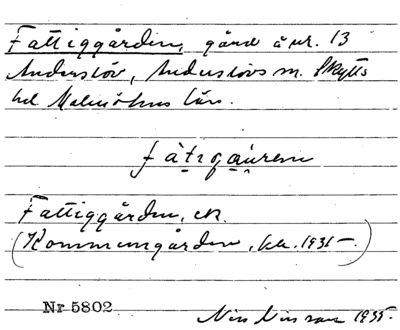 Fattiggården, gård å nr. 13
Anderslöv, Anderslövs sn. Skytts
hd Malmöhus län.
fàtigaúren
Fattiggården, ek.
(Kommungården, kk. 1931–.)
Nr 5802
Nils Nilsson 1935.